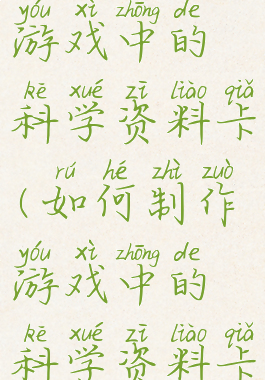 yóu xì zhōng de
游戏中的
kē xué zī liào qiǎ
科学资料卡
rú hé zhì zuò
(如何制作
yóu xì zhōng de
游戏中的
kē xué zī liào qiǎ
科学资料卡